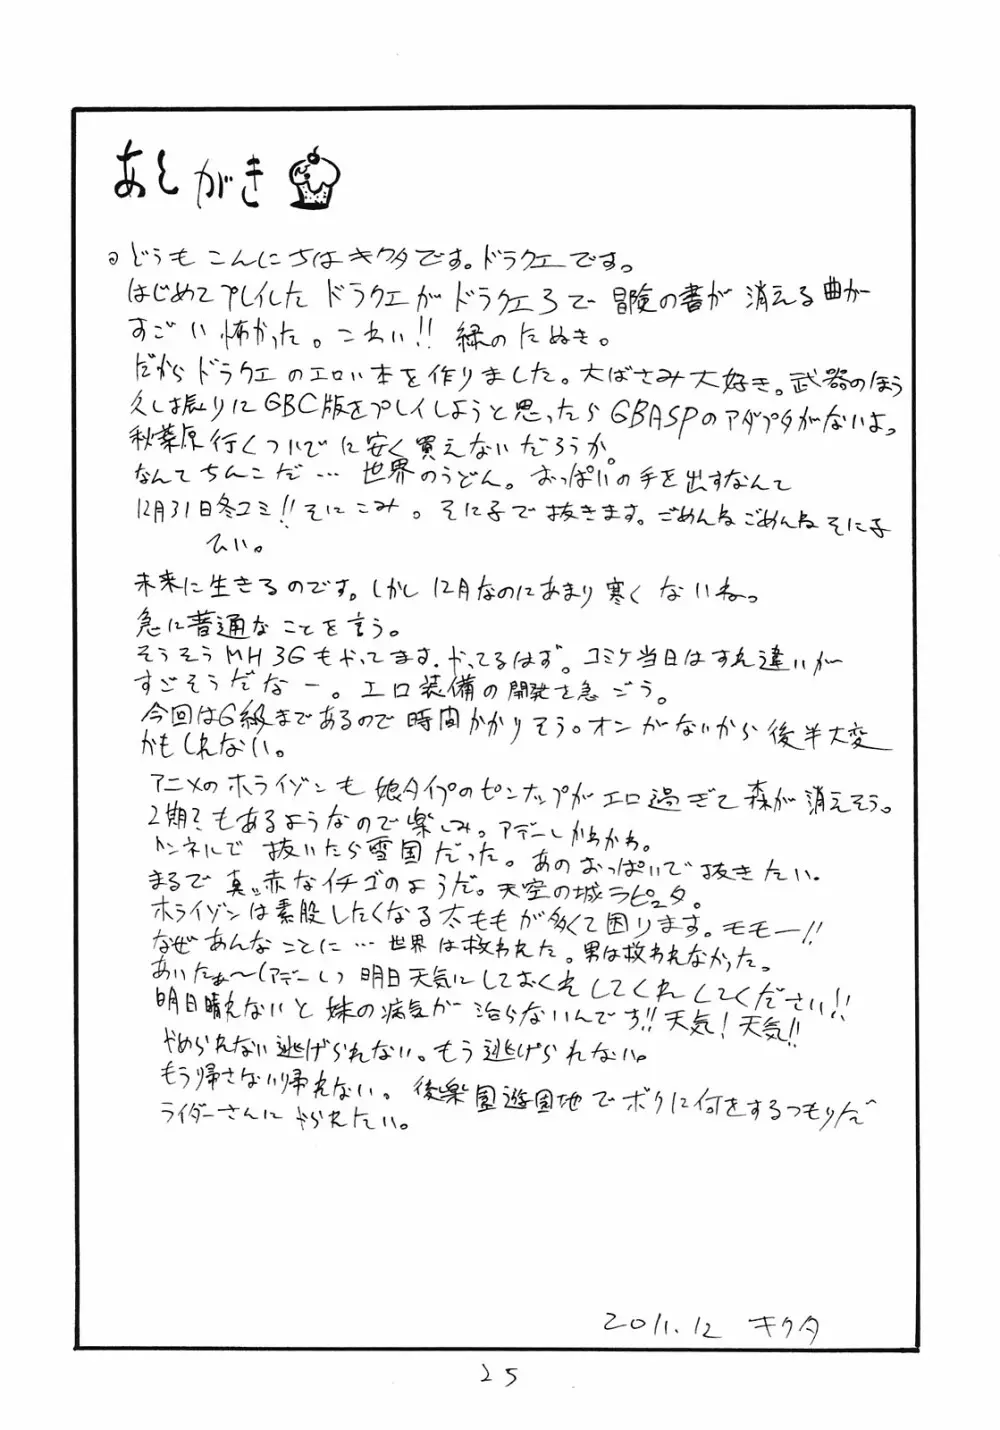 あとがき
どうもこんにちはキクタです。ドラクエです。
はじめてプレイしたドラクエがドラクエ3で冒険の書が消える曲が
すごい怖かった。こわい!!緑のたぬき。
だからドラクエのエロい本を作りました。大ばさみ大好き。武器のほう
久し振りにGBC版をプレイしようと思ったらGBASPのアダプタがないよっ
秋葉原行くついでに安く買えないだろうか。
なんてちんこだ…世界のうどん。おっぱいの手を出すなんて
12月31日冬コミ!!そにこみ。そに子で抜きます。ごめんねごめんねそに子
ひい。
未来に生きるのです。しかし12月なのにあまり寒くないねっ
急に普通なことを言う。
そうそうMH3Gもやってます。やってるはず。コミケ当日はすれ違いが
すごそうだなー。エロ装備の開発を急ごう。
今回はG級まであるので時間かかりそう。オンがないから後半大変
かもしれない。
アニメのホライゾンも娘タイプのピンナップがエロ過ぎて森が消えそう。
2期?もあるようなので楽しみ。アデーレかわかわ。
トンネルで抜いたら雪国だった。あのおっぱいで抜きたい。
まるで真っ赤なイチゴのようだ。天空の城ラピュタ。
ホライゾンは素股したくなる太ももが多くて困ります。モモー!!
なぜあんなことに…世界は救われた。男は救われなかった。
あいたぁ〜い(アデーレ)明日天気にしておくれしてくれしてください!!
明日晴れないと妹の病気が治らないんです!!天気!天気!!
やめられない逃げられない。もう逃げられない。
もう帰さない帰れない。後楽園遊園地でボクに何をするつもりだ
ライダーさんにやられたい。
2011.12 キクタ
25